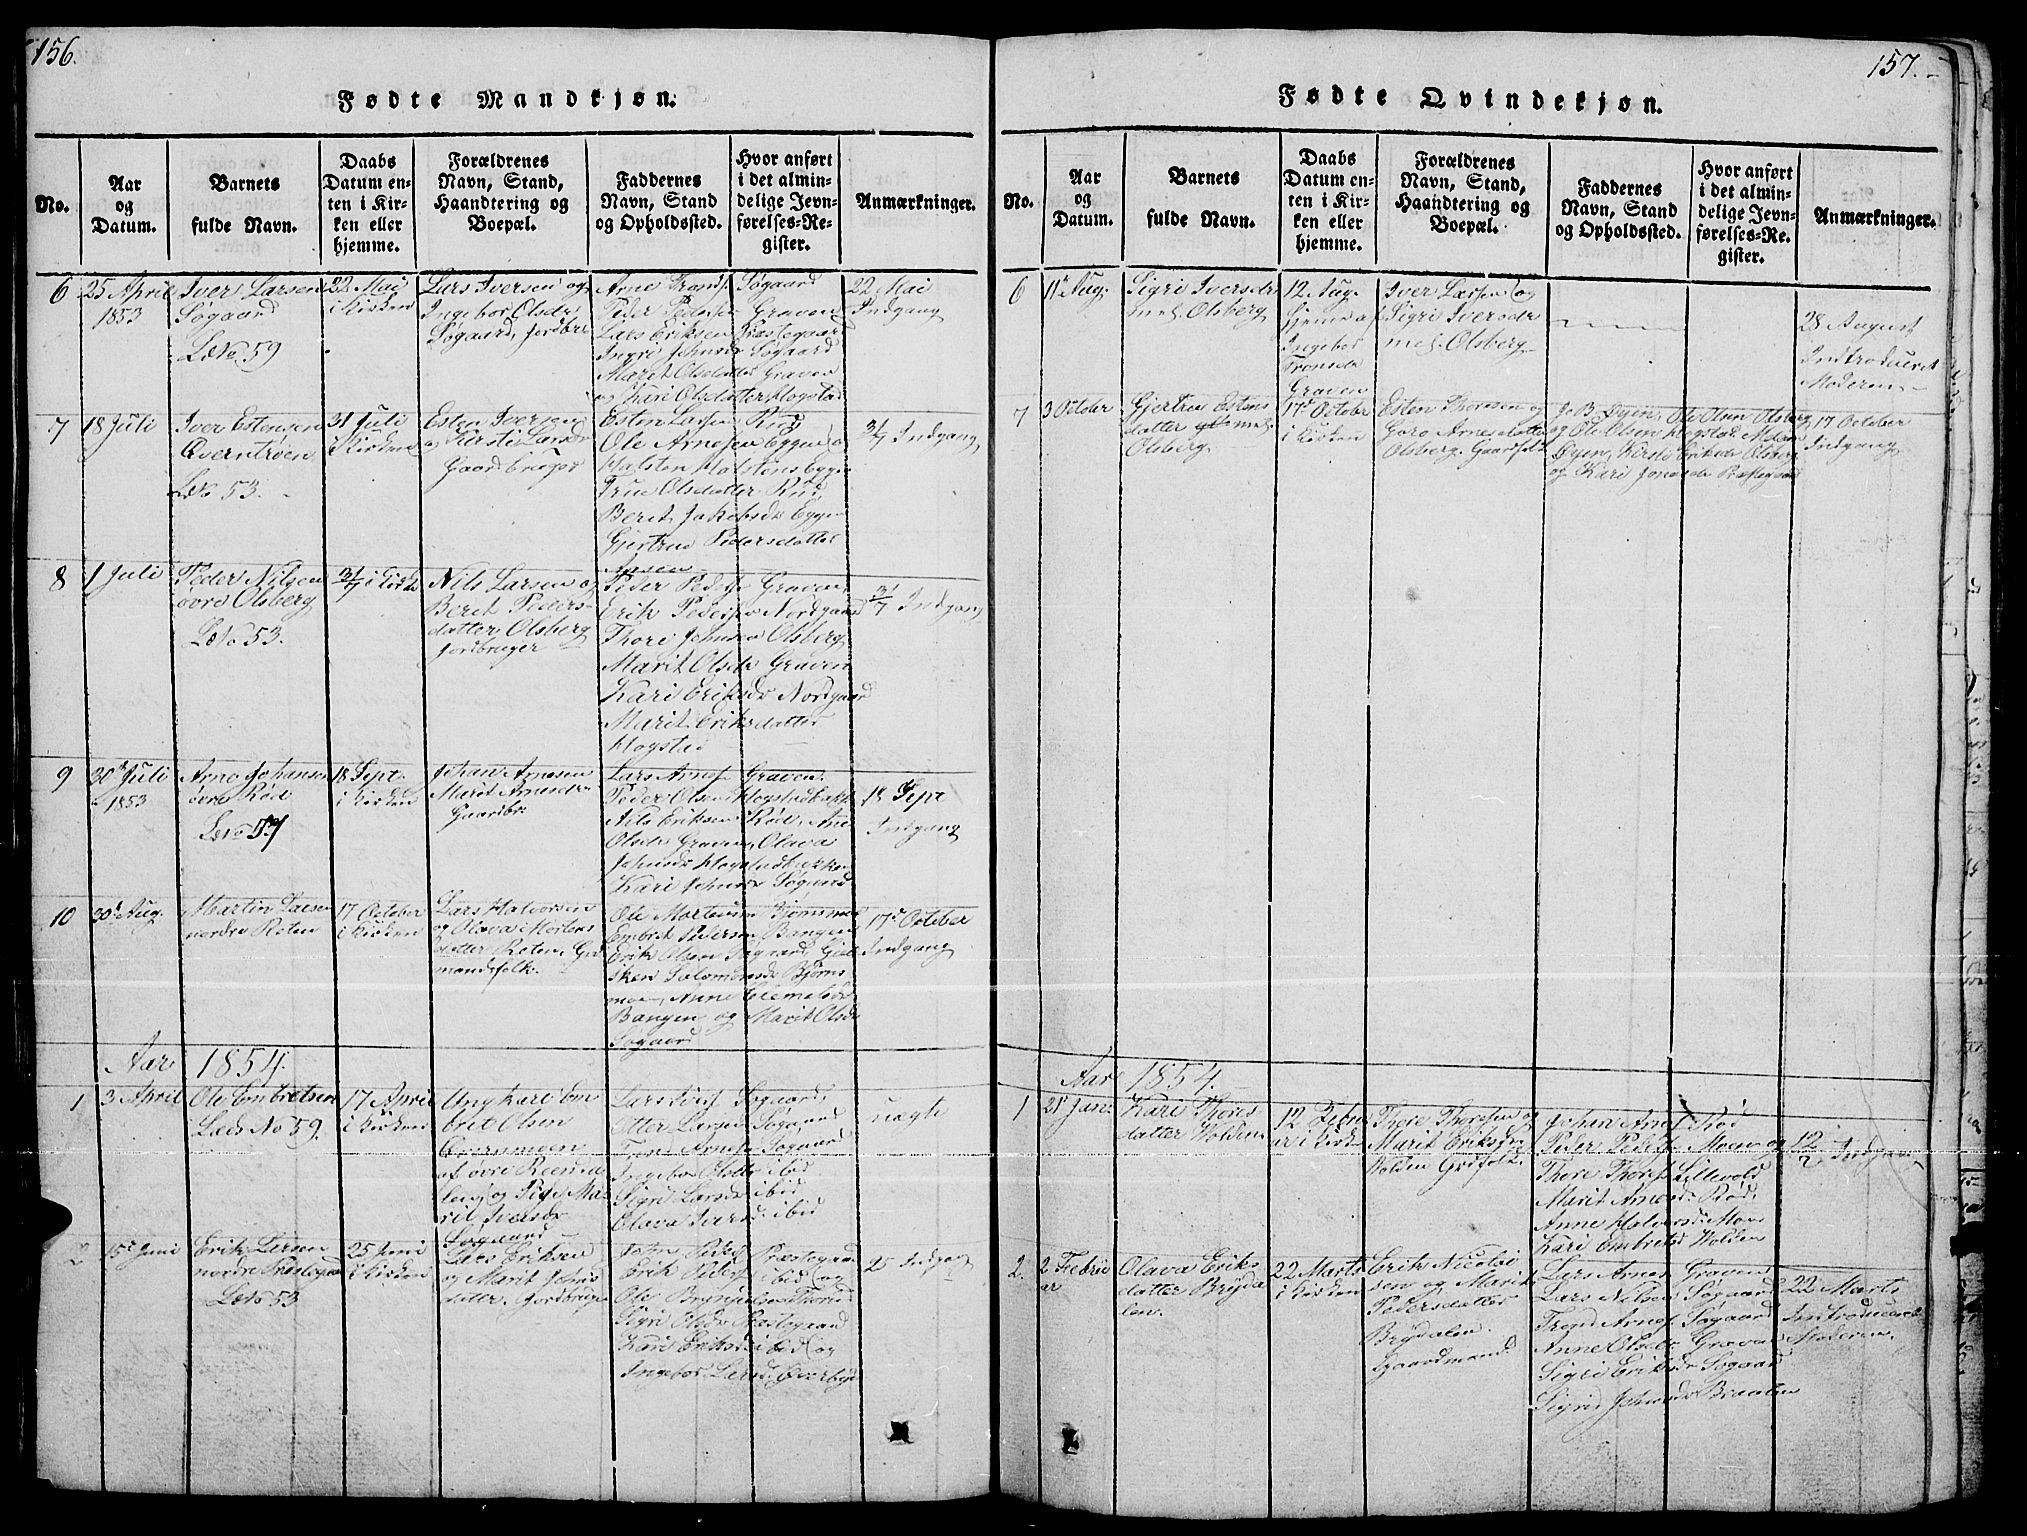 156.
Fødte Mandkjøn.
No.
Aar
og
Datum.
Barnets
fulde Navn.
Daabs
Datum en-
ten i Kir-
ken eller
hjemme.
Forældrenes
Navn, Stand,
Haandtering og
Boepæl.
Faddernes
Navn, Stand
og Opholdssted.
Hvor anført
i det almin-
delige Jevn-
førelses-Re-
gister.
Anmærkninger.
6
25 April
1853
Iver Larsen
Søgaard
LæNo 59
22 Mai
i Kirken
Lars Iversen og
Ingebor Olsdr
Søgaard, Jordbr
Arne Tronds. Søgaard
Peder Pedersen Graven
Lars Eriksen Præstegaard
Ingri Johnsdr Søgaard
Marit Olsdatter Graven
og Kari Olsdatter Hogstad
22 Mai
Indgang
7
18 Juli
Iver Estensen
Øverntrøen
LæNo 53.
31 Juli
i Kirken
Esten Iversen
og Kirsti Larsdr
Gaardbruger
Esten Larsen Rud
Ole Arnesen Eggen
Halsten Halstens Eggen
True Olsdatter Rud
Berit Jakobsdr Eggen
Gjertrue Pedersdatter
31/7 Indgang
8
1 Juli
Peder Nilsen
øvre Olsberg
LæNo 53.
31/7 i Kirk
Nils Larsen og
Berit Peders-
datter Olsberg
Jordbruger
Peder Peders. Graven
Erik Pedersen Nordgaard
Thore Johnsen Olsberg
Marit Olsdr Graven
Kari Eriksdr Nordgaard
Marit Eriksdatter
Hogstad
31/7 Indgang
9
30 Juli
1853
Arne Johansen
øvre Rød
LæNo 57
18 Sept.
i Kirken
Johan Arnesen
Marit Arnesdr
Gaardbr.
Lars Arnes. Graven.
Peder Olsen Hogstadbakk
Nils Eriksen Rød, Ane
Olsdr Graven, Olava
Johnsdr Hogstadbakken
Kari Johnsdr Søgaard
18 Sept
Indgang
10
30 Aug.
Martin Larsen
nordre Roten
17 October
i Kirken
Lars Halvorsen
og Olava Mortens
datter Roten, Grd
mandsfolk.
Ole Mortensen Bjørnsmo
Embret Pedersen Bangen
Erik Olsen Søgaard,
Salomonsdr Bjørns
moe, Anne Clemetsdr
Bangen og Marit Olsdr
Søgaard
17 October
Indgang
Aar 1854.
1
3 April
Ole Embretsen
Læds No 59.
17 April
i Kirken
Ungkarl Em
bret Olsen
af øvre
og Pige Ma-
rit Iversdr
Søgaard
Lars Ivers. Søgaard,
Otter Larsen Søgaard
Trond Arnesen Søgaard
Ingebor Olsdr ibid
Sigri Larsdr ibid
Olava Iversd. ibid
uægte
2
15 Juni
Erik Larsen
nordre Præstegaa
LæNo 53
25 Juni
i Kirken
Lars Eriksen
og Marit Johns
datter, Jordbruger
John Peders. Præstegaard
Erik Peders. ibid og
Ole Brynjulsen
Sigri Olsdr Præstegaard
Kari Eriksd. ibid og
Ingebor Larsd. Øverby
25 Indgang
157.
Fødte Qvindekjøn.
No.
Aar
og
Datum.
Barnets
fulde Navn.
Daabs
Datum en-
ten i Kir-
ken eller
hjemme.
Forældrenes
Navn, Stand,
Haandtering og
Boepæl.
Faddernes
Navn, Stand
og Opholdssted.
Hvor anført
i det almin-
delige Jevn-
førelses-Re-
gister.
Anmærkninger.
6
11 Aug.
Sigri Iversdr
mel. Olsberg
12 Aug.
hjemme af
Ingebor
Tronsdr
Graven
Iver Larsen og
Sigri Iversdr
mel. Olsberg
28 August
Indtroduceret
Moderen
7
3 October
Gjertru Estens
datter mel.
Olsberg
17 October
i Kirken
Esten Thoresen og
Goro Arnesdatter
Olsberg. Gaarfolk
J. B. Øyen, Ole Olsen Olsberg
og Ole Olsen Hogstad,
Øyen, Kirsti Eriksdr Olsberg
og Kari Jonsdr Præstegaar
17 October
Indgang
Aar 1854.
1
21 Jan.
Kari Thores
datter Volden
12 Febru
ar i Kirk
Thore Thoresen og
Marit Eriksdr
Volden Grdfolk.
Johan Arnes. Rød
Peder Peders. Moen og
Thore Thores. Lillevold
Marit Arnesd. Rød,
Anne Halvorsd. Moen
Kari Embretsd Volden
12/2 Indgan
2.
2 Febru
ar
Olava Eriks
datter Bryda
len.
22 Marts
i Kirken
Erik Nicolai
sen og Marit
Pedersdatter
Brydalen
Gaardmand
Lars Arnes. Graven
Lars Nilsen Søgaard
Trond Arnes. Søgaard
Anne Olsdr Graven
Sigri Eriksdr Søgaard
Sigri Johnsdr Braaten
22 Marts
Introduceret
Moderen